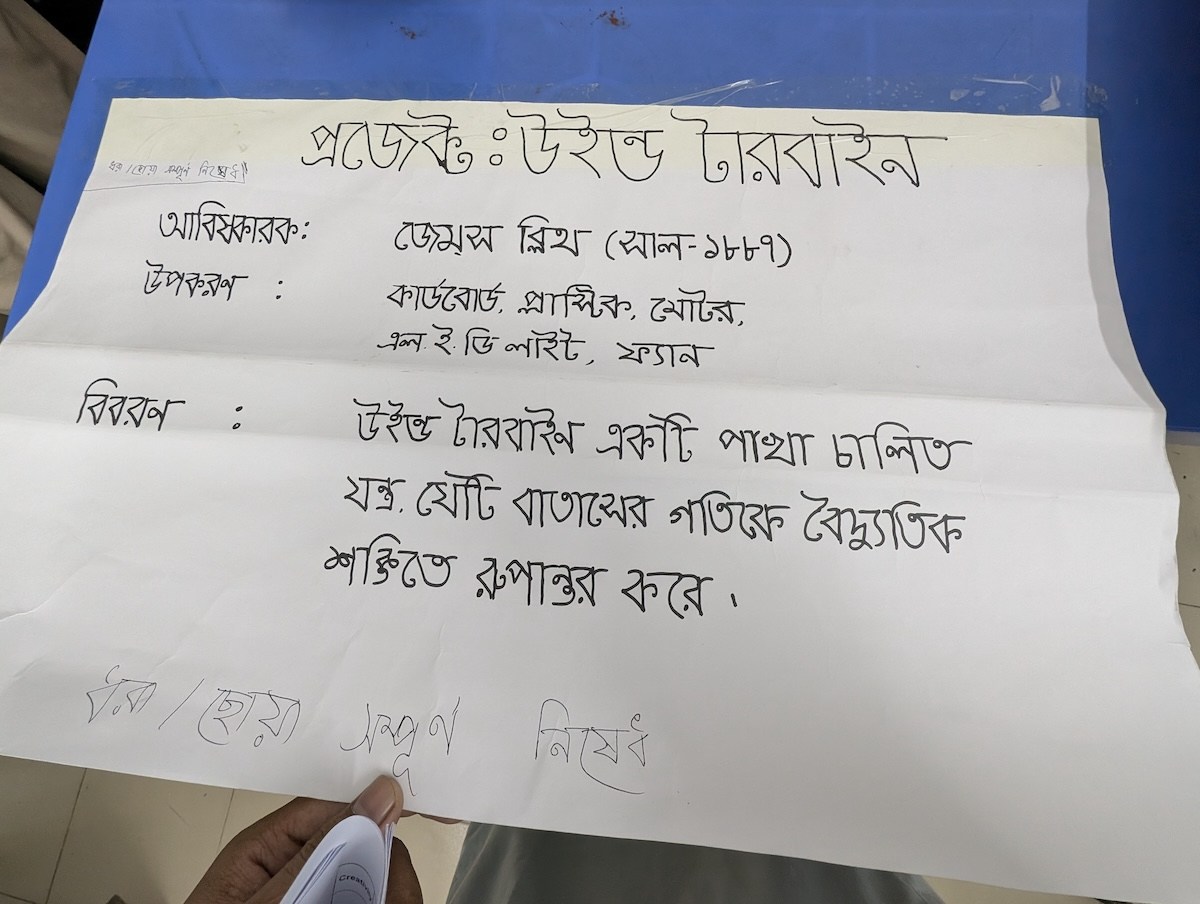 প্রজেক্ট : উইন্ড টারবাইন
ধরা / ছোয়া সম্পূর্ন নিষেধ
আবিষ্কারক: জেম্স ব্লিথ (সাল-১৮৮৭)
উপকরণ : কার্ডবোর্ড, প্লাস্টিক, মোটর,
এল.ই.ডি লাইট, ফ্যান
বিবরন : উইন্ড টারবাইন একটি পাখা চালিত
যন্ত্র, যেটি বাতাসের গতিকে বৈদ্যুতিক
শক্তিতে রুপান্তর করে।
ধরা / ছোয়া সম্পূর্ন নিষেধ